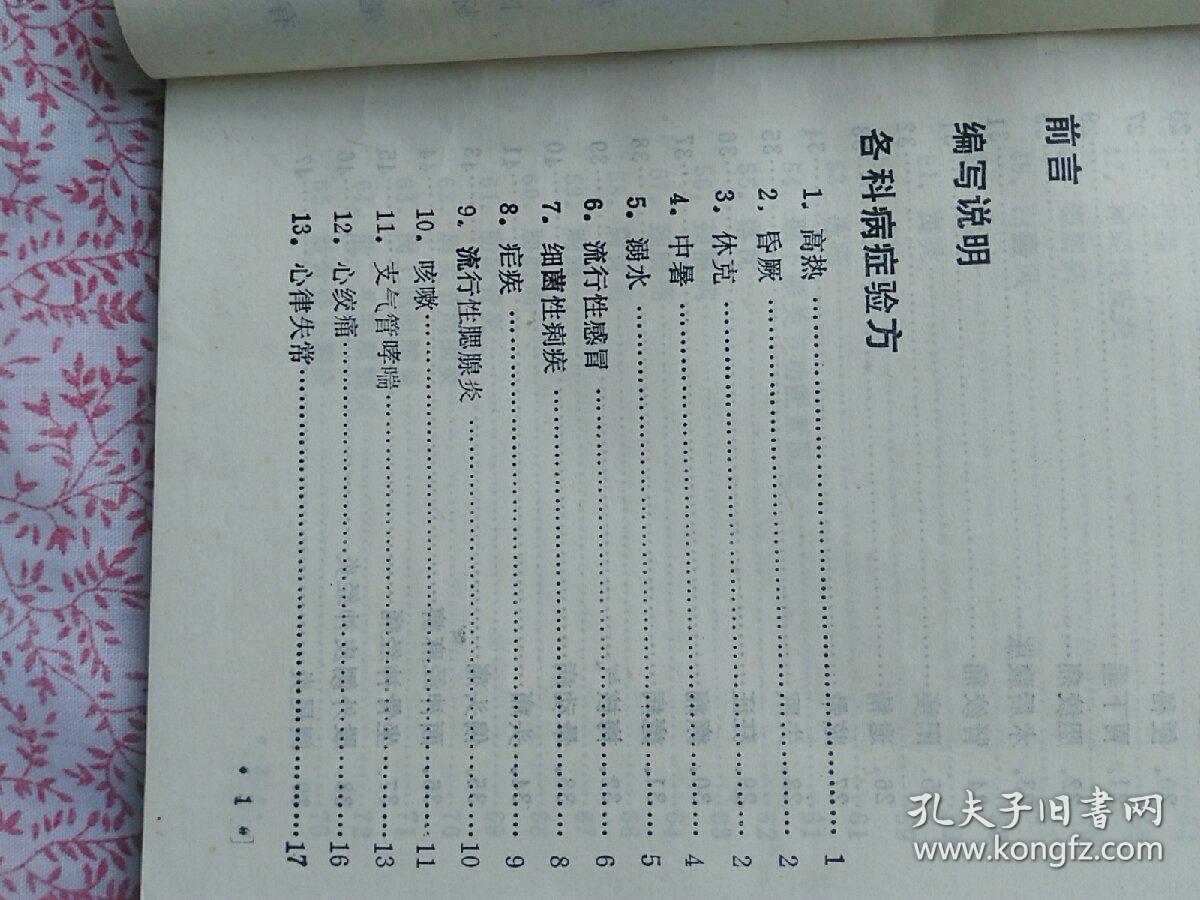 前言
编写说明
各科病症验方
1. 高热……………………………1
2. 昏厥……………………………2
3. 休克……………………………2
4. 中暑……………………………4
5. 溺水……………………………5
6. 流行性感冒……………………6
7. 细菌性痢疾……………………8
8. 疟疾……………………………9
9. 流行性腮腺炎…………………10
10. 咳嗽……………………………11
11. 支气管哮喘……………………13
12. 心绞痛…………………………16
13. 心律失常………………………17
• 1 •
孔夫子旧书网
www.kongfz.com